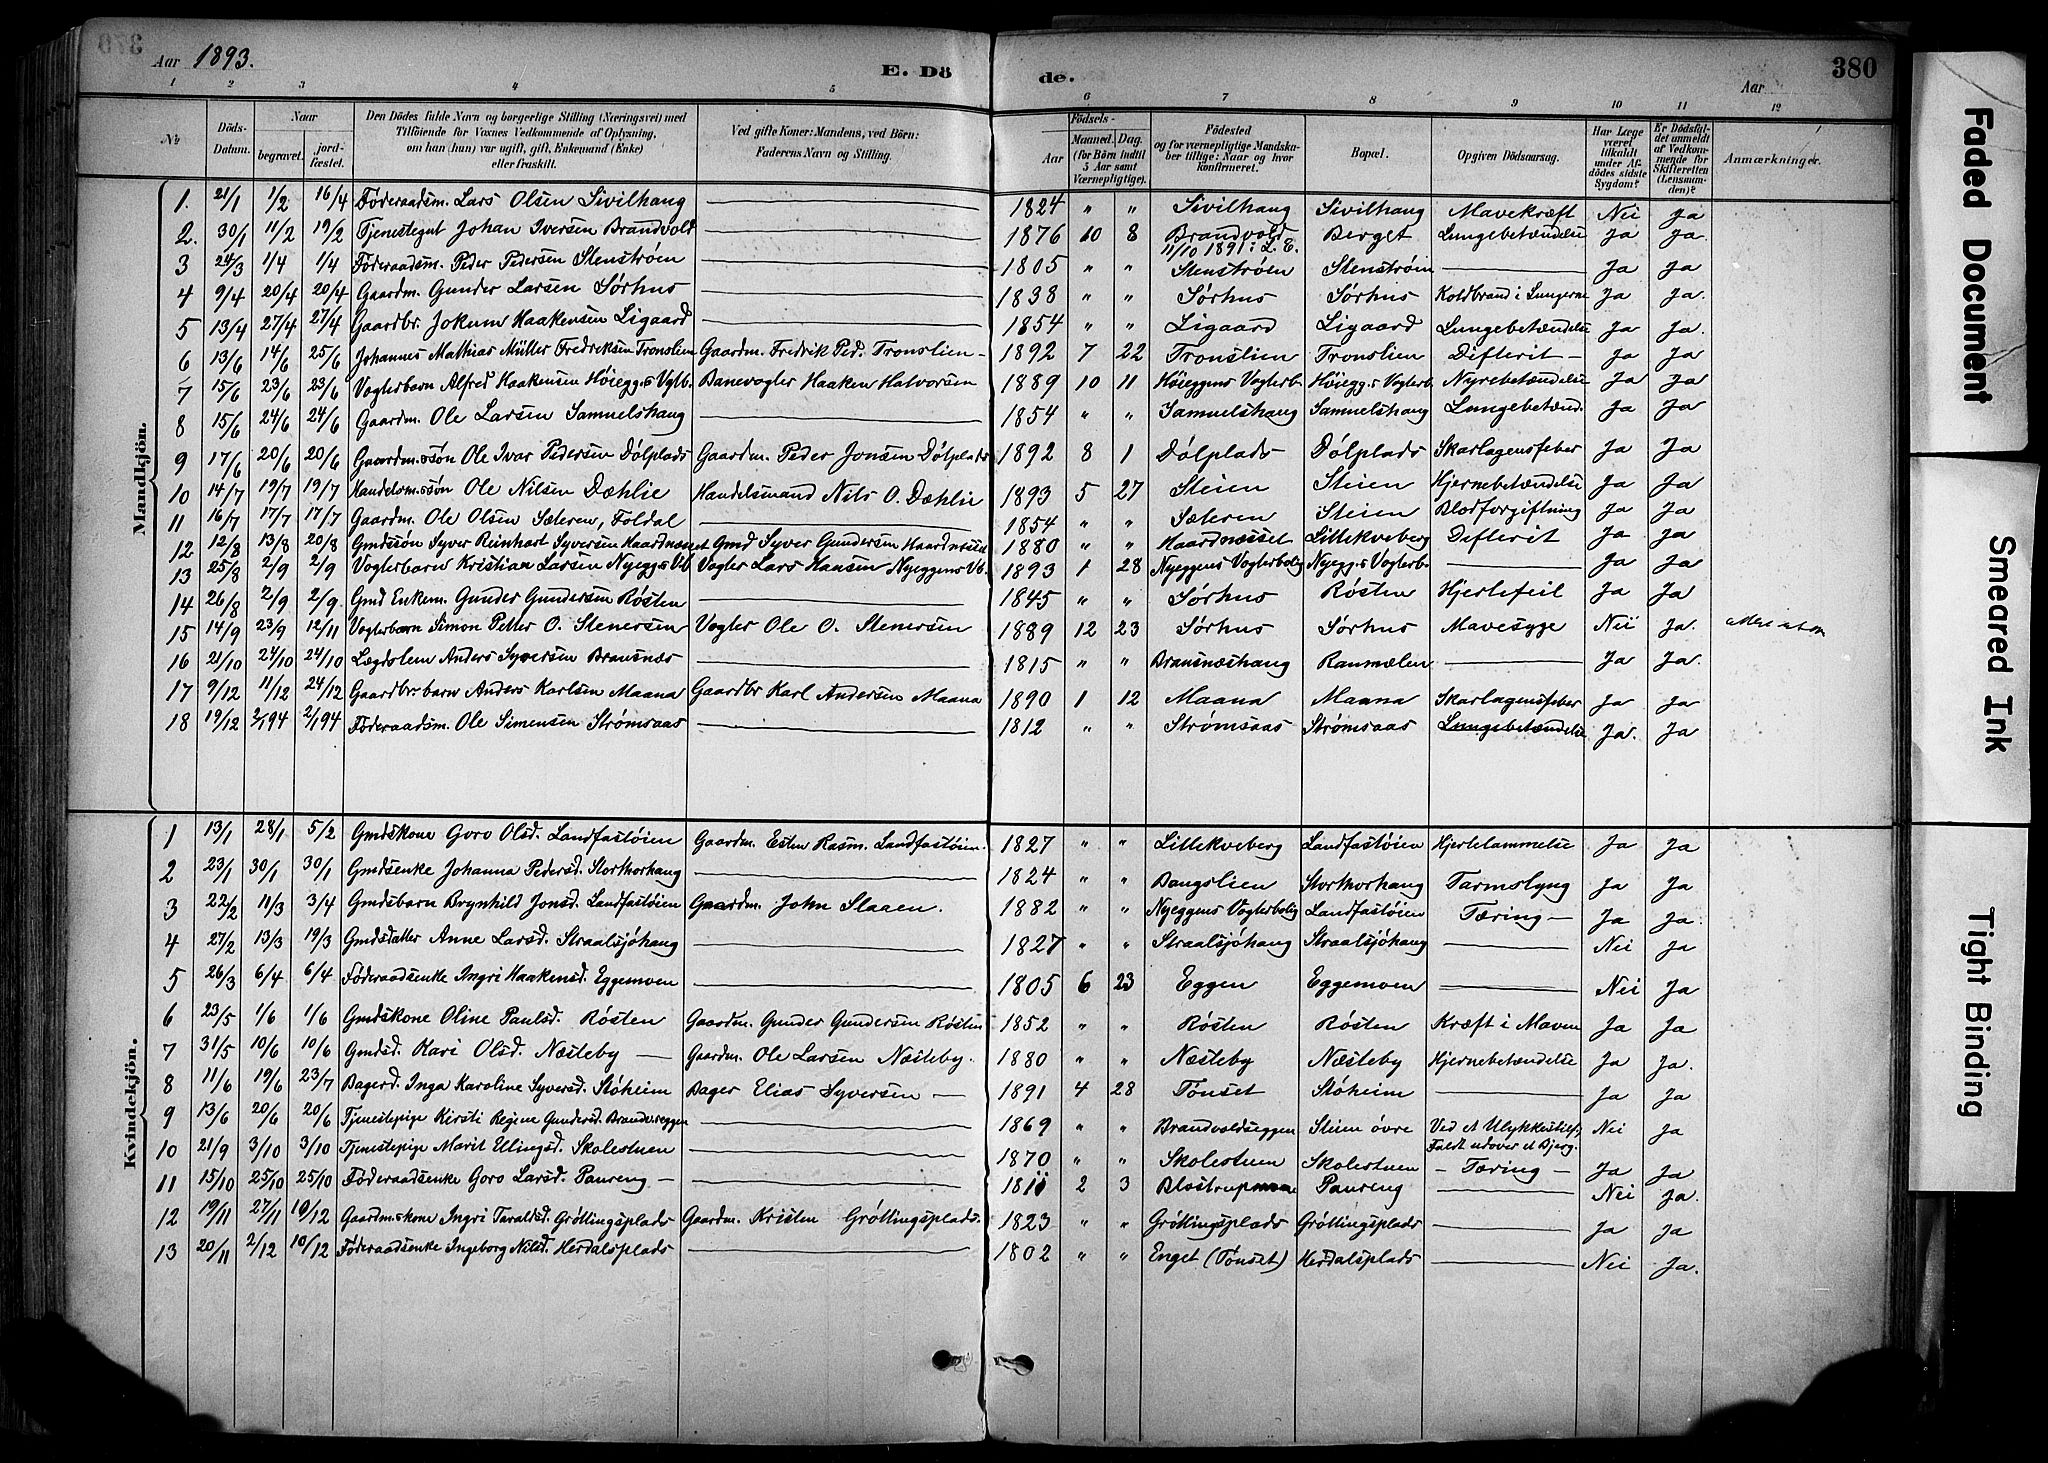 Aar 1893.
E. Dö
de.
Aar
380
1 2 3 4 5 6 7 8 9 10 11 12
No.
Döds-Datum.
Naar
begravet.
jord-fæstet.
Den Dödes fulde Navn og borgerlige Stilling (Næringsvei) med
Tilföiende for Voxnes Vedkommende af Oplysning,
om han (hun) var ugift, gift, Enkemand (Enke)
eller fraskilt.
Ved gifte Koner: Mandens, ved Börn:
Faderens Navn og Stilling.
Födsels-
Aar
Maaned. Dag.
(for Börn indtil
5 Aar samt
Værnepligtige).
Födested
og for værnepligtige Mandska-
ber tillige: Naar og hvor
konfirmeret.
Bopæl.
Opgiven Dödsaarsag.
Har Læge
været
tilkaldt
under Af-
dödes sidste
Sygdom?
Er Dödsfal-
det anmeldt
af Vedkom-
mende for
Skifteretten
(Lensman-
den)?
Anmærkninger.
Mandkjön.
1. 21/1 1/2 16/4 Føderaadsm. Lars Olsen Sivilhaug 1824 " " Sivilhaug Sivilhaug Mavekræft Nei Ja
2. 30/1 11/2 19/2 Tjenestegut Johan Iversen Brandvold 1876 10 8 Brandvold Berget Lungebetændelse Ja Ja
11/10 1891 i L. E.
3 24/3 1/4 1/4 Føderaadsm. Peder Pedersen Stenstrøen 1805 " " Stenstrøen Stenstrøen Ja Ja
4 9/4 20/4 20/4 Gaardm. Gunder Larsen Sørhus 1838 " " Sørhus Sørhus Koldbrand i Lungerne Ja Ja.
5 13/4 27/4 27/4 Gaardbr. Jokum Haakensen Ligaard 1854 " " Ligaard Ligaard Lungebetændelse Ja Ja.
6 13/6 14/6 25/6 Johannes Mathias Müller Fredriksen Tronslien Gaardm. Fredrik Ped. Tronslien 1892 7 22 Tronslien Tronslien Difterit Ja Ja
7 15/6 23/6 23/6 Vogterbarn Alfred Haakensen Høiegg.s Vgtb. Banevogter Haaken Halvorsen 1889 10 11 Høieggens Vogterb. Høiegg.s Vogterb. Nyrebetændelse Ja Ja
8 15/6 24/6 24/6 Gaardm. Ole Larsen Samuelshaug 1854 " " Samuelshaug Samuelshaug Lungebetænd. Ja Ja
9 17/6 20/6 20/6 Gaardm.søn Ole Ivar Pedersen Dølplads Gaardm. Peder Jonsen Dølplads 1892 8 1 Dølplads Dølplads Skarlagensfeber Ja Ja
10 14/7 19/7 19/7 Handelsm.søn Ole Nilsen Dæhlie Handelsmand Nils O. Dæhlie 1893 5 27 Steien Steien Hjernebetændelse Ja Ja
11 16/7 17/7 17/7 Gaardm. Ole Olsen Sæteren, Foldal 1854 " " Sæteren Steien Blodforgiftning Ja Ja
12 12/8 13/8 20/8 Gmdssøn Syver Reinhart Syversen Haardnæsset Gmd Syver Gundersen Haardnæsset 1880 " " Haardnæsset Littekveberg Difterit Ja Ja
13 25/8 2/9 2/9 Vogterbarn Kristian Larsen Nyegg.s Vb. Vogter Lars Hansen Nyeggens Vb. 1893 1 28 Nyeggens Vogterbolig Nyegg.s Vogterb. Ja Ja
14 26/8 2/9 2/9 Gmd Enkem. Gunder Gundersen Røsten 1845 " " Sørhus Røsten Hjertefeil Ja Ja
15 14/9 23/9 12/11 Vogterbarn Simon Petter O. Stenersen Vogter Ole O. Stenersen 1889 12 23 Sørhus Sørhus Mavesyge Nei Ja.
16 21/10 24/10 24/10 Lægdslem Anders Syversen Bransnæs 1815 " " Bransnæshaug Ranmælen Ja Ja.
17 9/12 11/12 24/12 Gaardbr.barn Anders Karlsen Maana Gaardbr Karl Andersen Maana 1890 1 12 Maana Maana Skarlagensfeber Ja Ja
18 19/12 2/1 94 2/1 94 Føderaadsm. Ole Simensen Strømsaas 1812 " " Strømsaas Strømsaas Lungebetændelse Ja. Ja
Kvindekjön.
1 13/1 28/1 5/2 Gmdskone Goro Olsd. Landfastøien Gaardm. Esten Rasm. Landfastøien. 1827 " " Littekveberg Landfastøien Hjertelammelse Ja Ja
2 23/1 30/1 30/1 Gmdsenke Johanna Pedersd. Storthorhaug 1824 " " Bangslien Storthorhaug Tarmslyng Ja Ja
3 22/2 11/3 3/4 Gmdsbarn Brynhild Jonsd. Landfastøien Gaardm. John Slaaen. 1882 " " Nyeggens Vogterbolig Landfastøien Tæring Ja Ja.
4 27/2 13/3 19/3 Gmdsdatter Anne Larsd. Straalsjøhaug 1827 " " Straalsjøhaug Straalsjøhaug Nei Ja
5 26/3 6/4 6/4 Føderaadsenke Ingri Haakensd. Eggemoen 1805 6 23 Eggen Eggemoen Nei Ja
6 23/5 1/6 1/6 Gmdskone Oline Paulsd. Røsten Gaardm. Gunder Gundersen Røsten 1852 " " Røsten Røsten Kræft i Maven Ja Ja
7 31/5 10/6 10/6 Gmdsd. Kari Olsd. Næsteby Gaardm. Ole Larsen Næsteby. 1880 " " Næsteby Næsteby Hjernebetændelse Ja Ja.
8 11/6 19/6 23/7 Bagerd. Inga Karoline Syversd. Støheim Bager Elias Syversen 1891 4 28 Tønset Støheim Ja Ja
9 13/6 20/6 20/6 Tjenestepige Kirsti Regine Gundersd. Brandv.eggen 1869 " " Brandvoldseggen Steien øvre Ved et Ulykkestilf. Nei Ja
Faldt udover et Bjerg.
10 21/9 3/10 3/10 Tjenestepige Marit Ellingsd. Skolestuen 1870 " " Skolestuen Skolestuen Tæring Ja Ja
11 15/10 25/10 25/10 Føderaadsenke Goro Larsd. Paureng 1811 2 3 Blostrupmoen Paureng Nei Ja.
12 19/11 27/11 10/12 Gaardm.skone Ingri Taraldsd. Grøttingsplads Gaardm. Kristen Grøttingsplads. 1823 " " Grøttingsplads Grøttingsplads Ja Ja
13 20/11 2/12 10/12 Føderaadsenke Ingeborg Nilsd. Herdalsplads 1802 " " Enget (Tønset) Herdalsplads Nei Ja.
Faded Document
Smeared Ink
Tight Binding